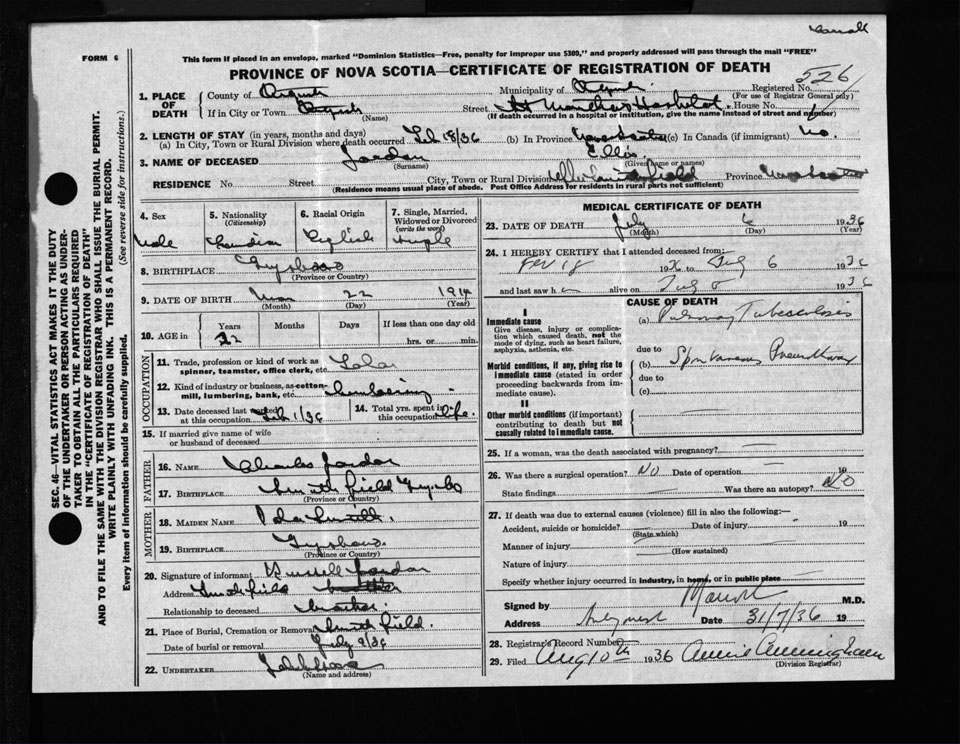 FORM 6
This form if placed in an envelope, marked "Dominion Statistics—Free, penalty for improper use $300," and properly addressed will pass through the mail "FREE"
PROVINCE OF NOVA SCOTIA—CERTIFICATE OF REGISTRATION OF DEATH
526
1. PLACE OF DEATH
County of
Municipality of
Registered No.
(For use of Registrar General only)
If in City or Town
(Name)
Street St Martha's Hospital House No.
(If death occurred in a hospital or institution, give the name instead of street and number)
2. LENGTH OF STAY (in years, months and days)
(a) In City, Town or Rural Division where death occurred Feb 18/36 (b) In Province Nova Scotia (c) In Canada (if immigrant) no.
3. NAME OF DECEASED Jordan Ellis
(Surname) (Given name or names)
RESIDENCE No. Street City, Town or Rural Division Province Nova Scotia
(Residence means usual place of abode. Post Office Address for residents in rural parts not sufficient)
4. Sex
Male
5. Nationality (Citizenship)
Canadian
6. Racial Origin
English
7. Single, Married, Widowed or Divorced (write the word)
Single
8. BIRTHPLACE Guysboro
(Province or Country)
9. DATE OF BIRTH Mar 22 1914
(Month) (Day) (Year)
10. AGE in Years Months Days If less than one day old
22 hrs. or min.
OCCUPATION
11. Trade, profession or kind of work as spinner, teamster, office clerk, etc.
12. Kind of industry or business, as cotton-mill, lumbering, bank, etc. Lumbering
13. Date deceased last worked at this occupation Feb 1/36
14. Total yrs. spent in this occupation life.
15. If married give name of wife or husband of deceased
FATHER
16. NAME Charles Jordan
17. BIRTHPLACE Smithfield Guysbo
(Province or Country)
MOTHER
18. MAIDEN NAME
19. BIRTHPLACE Guysboro.
(Province or Country)
20. Signature of informant Russell Jordan
Address Smithfield
Relationship to deceased brother.
21. Place of Burial, Cremation or Removal Smithfield.
Date of burial or removal July 9/36
22. UNDERTAKER
(Name and address)
MEDICAL CERTIFICATE OF DEATH
23. DATE OF DEATH July 6 1936
(Month) (Day) (Year)
24. I HEREBY CERTIFY that I attended deceased from:
Feb 18 1936 to July 6 1936
and last saw h alive on 1936
CAUSE OF DEATH
I
Immediate cause
Give disease, injury or complication which caused death, not the mode of dying, such as heart failure, asphyxia, asthenia, etc.
(a) Pulmonary Tuberculosis
due to
Morbid conditions, if any, giving rise to immediate cause (stated in order proceeding backwards from immediate cause).
(b) Spontaneous Pneumothorax
due to
(c)
II
Other morbid conditions (if important) contributing to death but not causally related to immediate cause.
25. If a woman, was the death associated with pregnancy?
26. Was there a surgical operation? NO Date of operation 19
State findings Was there an autopsy? NO
27. If death was due to external causes (violence) fill in also the following:—
Accident, suicide or homicide? Date of injury 19
(State which)
Manner of injury
(How sustained)
Nature of injury
Specify whether injury occurred in industry, in home, or in public place
Signed by M.D.
Address Date 31/7/36 19
28. Registrar's Record Number
29. Filed Aug 10th 1936 Annie Cunningham
(Division Registrar)
SEC. 46—VITAL STATISTICS ACT MAKES IT THE DUTY OF THE UNDERTAKER OR PERSON ACTING AS UNDERTAKER TO OBTAIN ALL THE PARTICULARS REQUIRED IN THE "CERTIFICATE OF REGISTRATION OF DEATH" AND TO FILE THE SAME WITH THE DIVISION REGISTRAR WHO SHALL ISSUE THE BURIAL PERMIT.
WRITE PLAINLY WITH UNFADING INK. THIS IS A PERMANENT RECORD.
Every item of information should be carefully supplied. (See reverse side for instructions.)